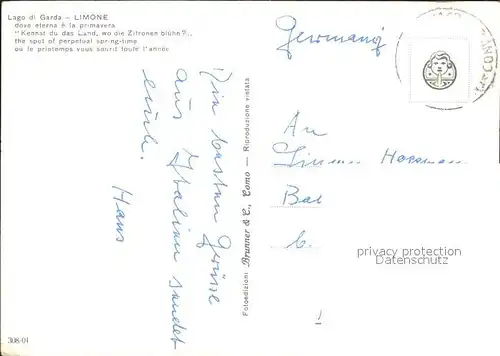 Lago di Garda — LIMONE
dove eterna è la primavera
"Kennst du das Land, wo die Zitronen blühn?..
the spot of perpetual spring-time
où le printemps vous sourit toute l'année
Die besten Grüsse
aus Italien sendet
euch.
Hans
Fotoedizioni Brunner & C., Como — Riproduzione vietata
Germany
An
privacy protection
Datenschutz
308-01